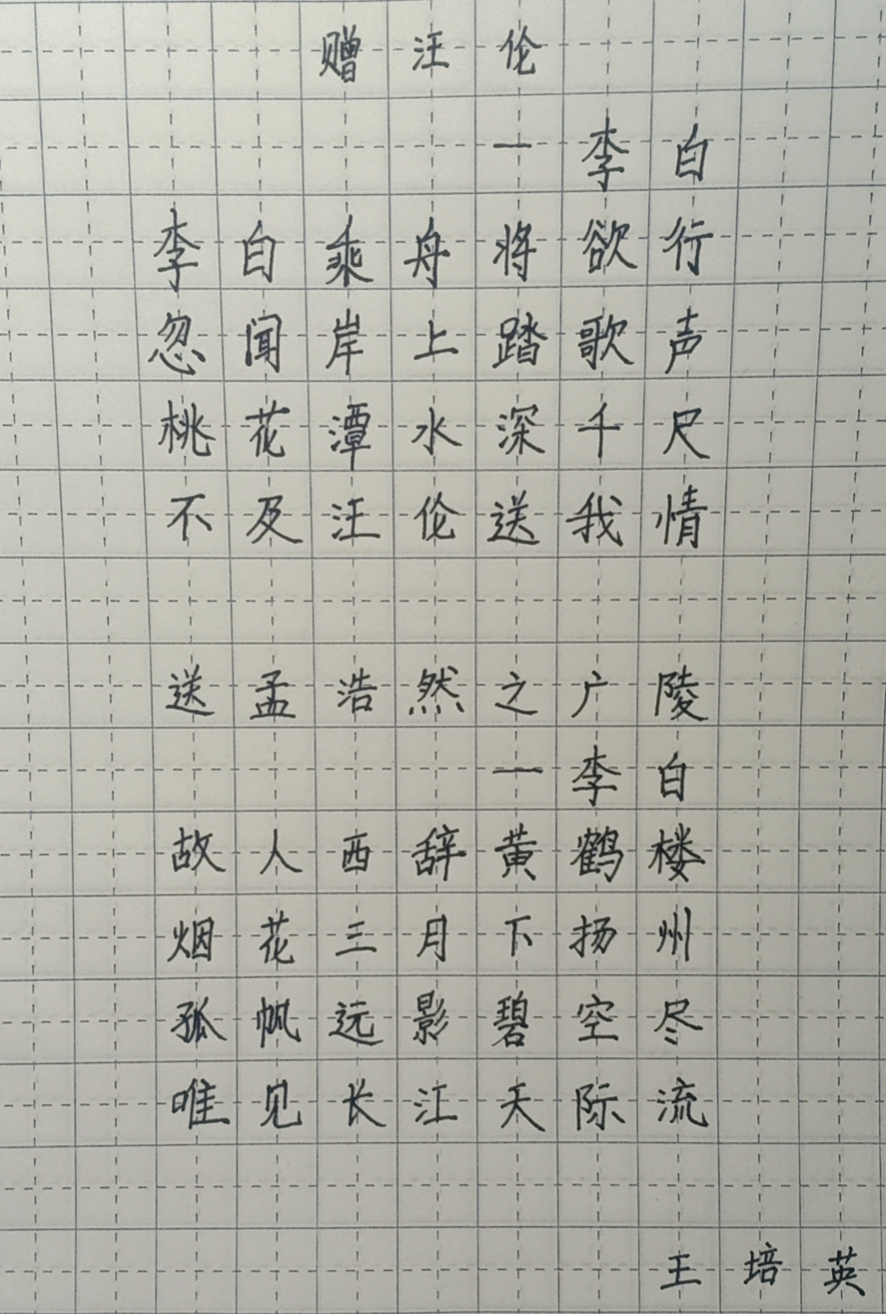 赠汪伦
一李白
李白乘舟将欲行
忽闻岸上踏歌声
桃花潭水深千尺
不及汪伦送我情
送孟浩然之广陵
一李白
故人西辞黄鹤楼
烟花三月下扬州
孤帆远影碧空尽
唯见长江天际流
王培英